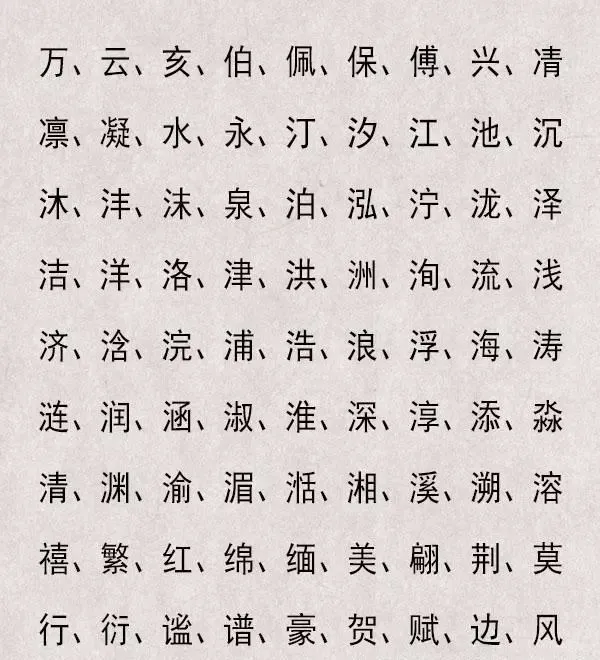 万、云、亥、伯、佩、保、傅、兴、凊
凛、凝、水、永、汀、汐、江、池、沉
沐、沣、沫、泉、泊、泓、泞、泷、泽
洁、洋、洛、津、洪、洲、洵、流、浅
济、浛、浣、浦、浩、浪、浮、海、涛
涟、润、涵、淑、淮、深、淳、添、淼
清、渊、渝、湄、湉、湘、溪、溯、溶
禧、繁、红、绵、缅、美、翩、荆、莫
行、衍、谧、谱、豪、贺、赋、边、风